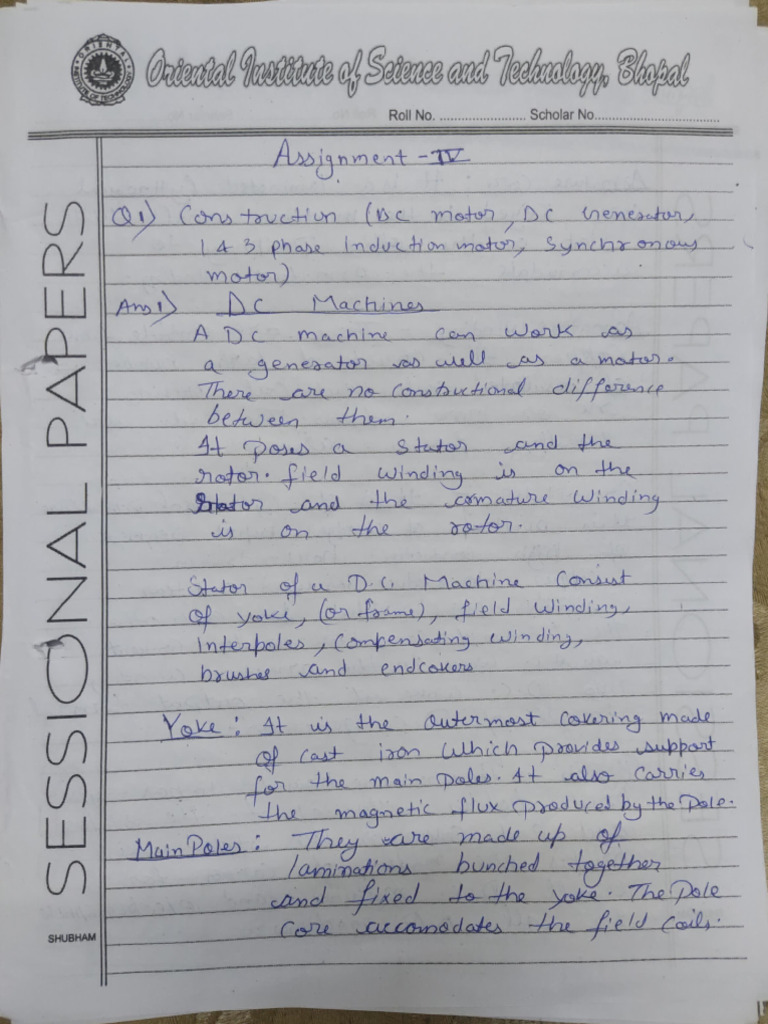 ORIENTAL
INSTITUTE OF TECHNOLOGY
Oriental Institute of Science and Technology, Bhopal
Roll No. ........................ Scholar No................................
SESSIONAL PAPERS
Assignment - IV
Q1) Construction (DC motor, DC Generator,
1 & 3 phase Induction motor, Synchronous
motor)
Ans1) DC Machines
A DC machine can work as
a generator as well as a motor.
There are no constructional difference
between them.
It poses a stator and the
rotor. field winding is on the
stator and the armature winding
is on the rotor.
Stator of a D.C. Machine Consist
of yoke, (or frame), field winding,
Interpoles, Compensating winding,
brushes and endcovers
Yoke : It is the outermost covering made
of cast iron which provides support
for the main poles. It also carries
the magnetic flux produced by the Pole.
Main Poles : They are made up of
laminations bunched together
and fixed to the yoke. The Pole
core accomodates the field coils.
SHUBHAM